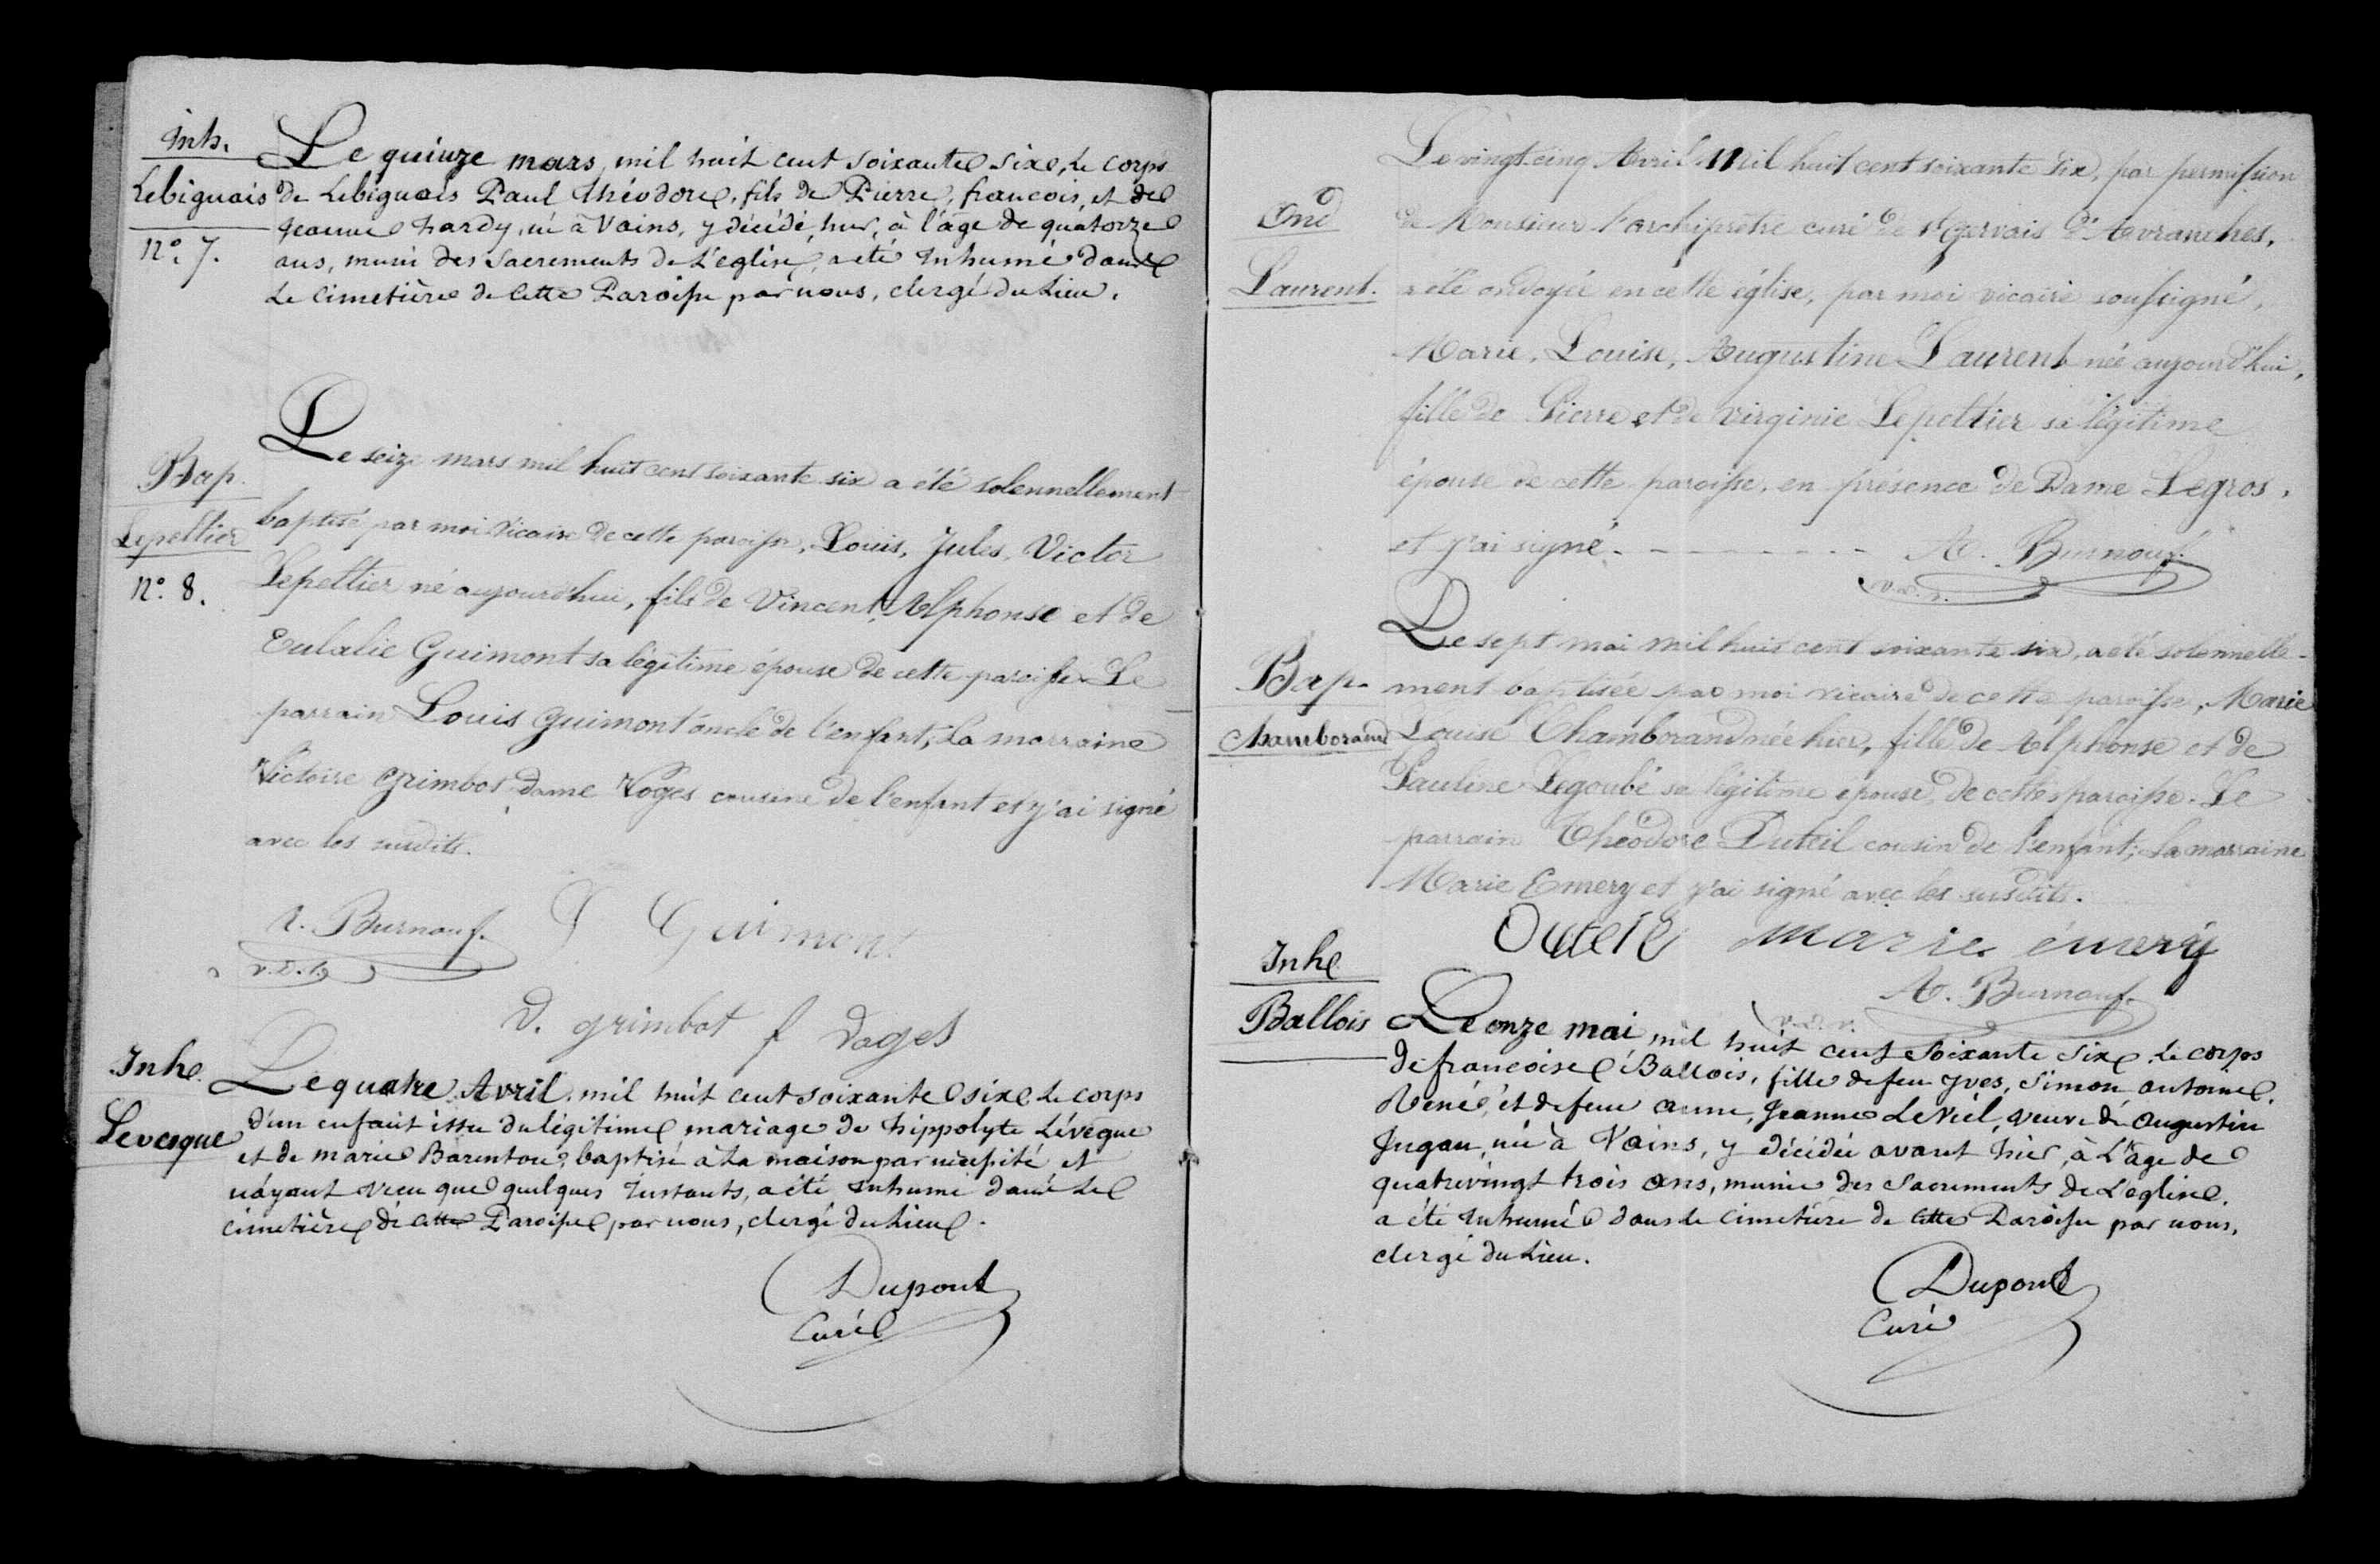 Inh.
Lebiguais
N°. 7.
Le quinze mars, mil huit cent soixante six, le corps
de Lebiguais Paul Théodore, fils de Pierre, francois, et de
Jeanne hardy, né à Vains, y décédé, hier, à l'âge de quatorze
ans, muni des Sacrements de L'eglise, a eté inhumé dans
le Cimetière de cette Paroisse par nous, clergé du Lieu.
Bap.
Lepeltier
N°. 8.
Le seize mars mil huit cent soixante six a été solennellement
baptisé par moi vicaire de cette paroisse, Louis, Jules, Victor
Lepeltier né aujourd'hui, fils de Vincent, Alphonse et de
Eulalie Guimont sa légitime épouse de cette paroisse. Le
parrain Louis Guimont oncle de l'enfant, La marraine
Victoire Grimbot dame Voges cousine de l'enfant et j'ai signé
avec les susdits.
A. Burnouf.
v.d.v.
Guimont
V. grimbot f Vages
Inh.
Levesque
Le quatre Avril, mil huit cent soixante six le corps
d'un enfant issu du légitime mariage de hippolyte Lévêque
et de marie Barenton, baptisé à la maison par nécessité, et
n'áyant vécu que quelques instants, a été inhumé dans le
cimetière de cette Paroisse par nous, clergé du Lieu.
Dupont
Curé
Ond
Laurent.
Le vingt cinq Avril Mil huit cent soixante six, par permission
de Monsieur l'archiprêtre curé de St Gervais d'Avranches,
a été ondoyée en cette église, par moi vicaire soussigné,
Marie, Louise, Augustine Laurent née aujourd'hui,
fille de Pierre et de virginie Lepeltier sa légitime
épouse de cette paroisse, en présence de Dame Legros,
et j'ai signé. A. Burnouf.
v.d.v.
Bap.
Chamborand
Le sept mai mil huit cent soixante six, a été solennelle-
ment baptisée par moi vicaire de cette paroisse, Marie
Louise Chamborand née hier, fille de Alphonse et de
Pauline Legoubé sa légitime épouse, de cette paroisse. Le
parrain Théodore Duteil cousin de l'enfant; La marraine
Marie Emery et j'ai signé avec les susdits.
Duteil marie émery
A. Burnouf.
v.d.v.
Inh.
Ballois
Le onze mai mil huit cent soixante six, le corps
de francoise Ballois, fille de feu Yves, Simon, antoine,
René, et de feue anne, Jeanne LeViel, veuve de augustin
Jugan, née à Vains, y décédée avant hier, à L'âge de
quatrevingt trois ans, munie des Sacrements de L'eglise,
a été inhumée dans le Cimetière de cette Paroisse par nous,
clergé du Lieu.
Dupont
Curé